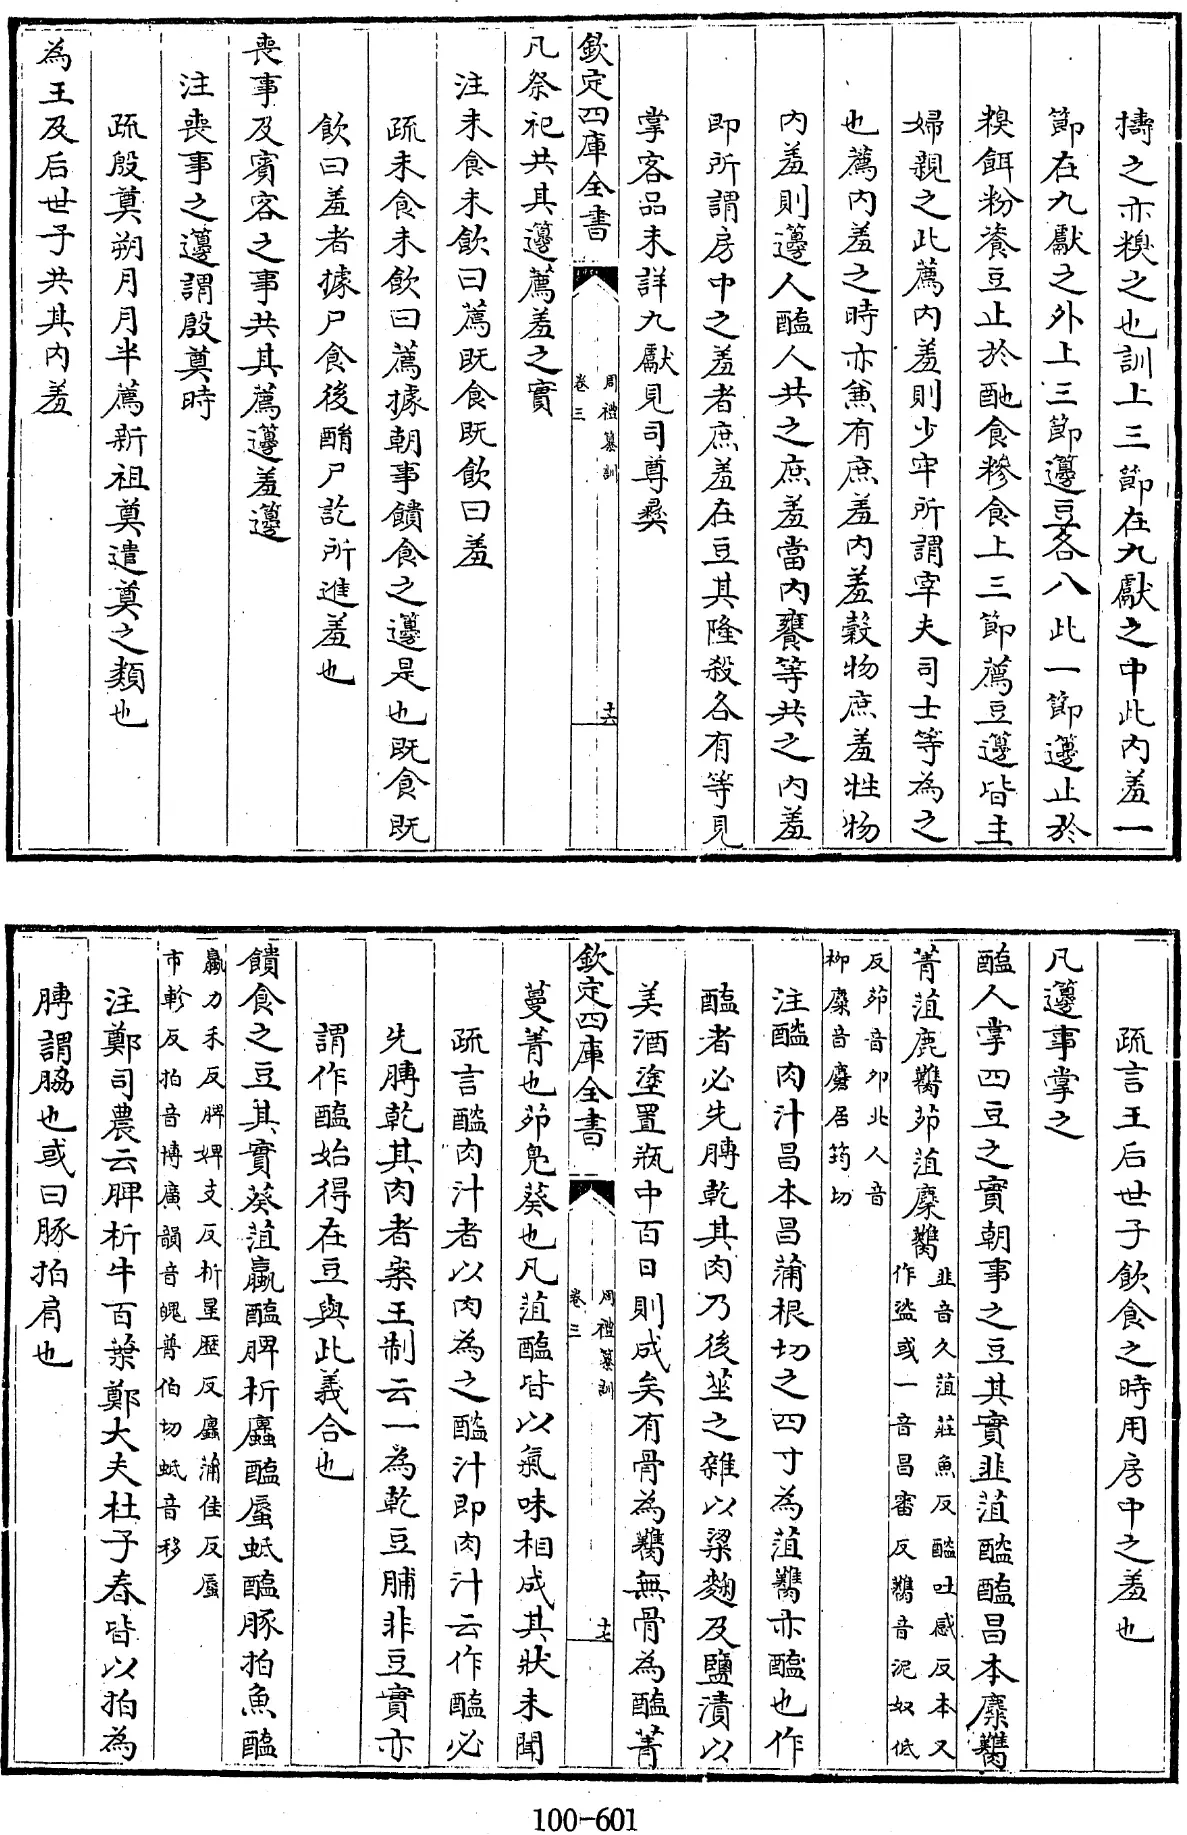 擣之亦糗之也訓上三節在九獻之中此內羞一
節在九獻之外上三節籩豆各八此一節籩止於
糗餌粉餈豆止於酏食糝食上三節薦豆籩皆主
婦親之此薦內羞則少牢所謂宰夫司士等為之
也薦內羞之時亦兼有庶羞內羞穀物庶羞牲物
內羞則籩人醢人共之庶羞當內饔等共之內羞
即所謂房中之羞者庶羞在豆其隆殺各有等見
掌客品未詳九獻見司尊彝
欽定四庫全書
周禮纂訓
卷三
十六
凡祭祀共其籩薦羞之實
注未食未飲曰薦既食既飲曰羞
疏未食未飲曰薦據朝事饋食之籩是也既食既
飲曰羞者據尸食後酳尸訖所進羞也
喪事及賓客之事共其薦籩羞籩
注喪事之籩謂殷奠時
疏殷奠朔月月半薦新祖奠遣奠之類也
為王及后世子共其內羞
疏言王后世子飲食之時用房中之羞也
凡籩事掌之
醢人掌四豆之實朝事之豆其實韭菹醓醢昌本麋臡
菁菹鹿臡茆菹麋臡
韭音久菹莊魚反醓吐感反本又
作盜或一音昌審反臡音泥奴低
反茆音卯北人音
柳麋音麕居筠切
注醓肉汁昌本昌蒲根切之四寸為菹臡亦醢也作
醢者必先膊乾其肉乃後莝之雜以粱麴及鹽漬以
美酒塗置瓶中百日則成矣有骨為臡無骨為醢菁
欽定四庫全書
周禮纂訓
卷三
十七
蔓菁也茆鳧葵也凡菹醢皆以氣味相成其狀未聞
疏言醓肉汁者以肉為之醓汁即肉汁云作醢必
先膊乾其肉者案王制云一為乾豆脯非豆實亦
謂作醢始得在豆與此義合也
饋食之豆其實葵菹蠃醢脾析蠯醢蜃蚳醢豚拍魚醢
蠃力禾反脾婢支反析星歷反蠯蒲佳反蜃
市軫反拍音博廣韻音魄普伯切蚳音移
注鄭司農云脾析牛百葉鄭大夫杜子春皆以拍為
膊謂脇也或曰豚拍肩也
100-601